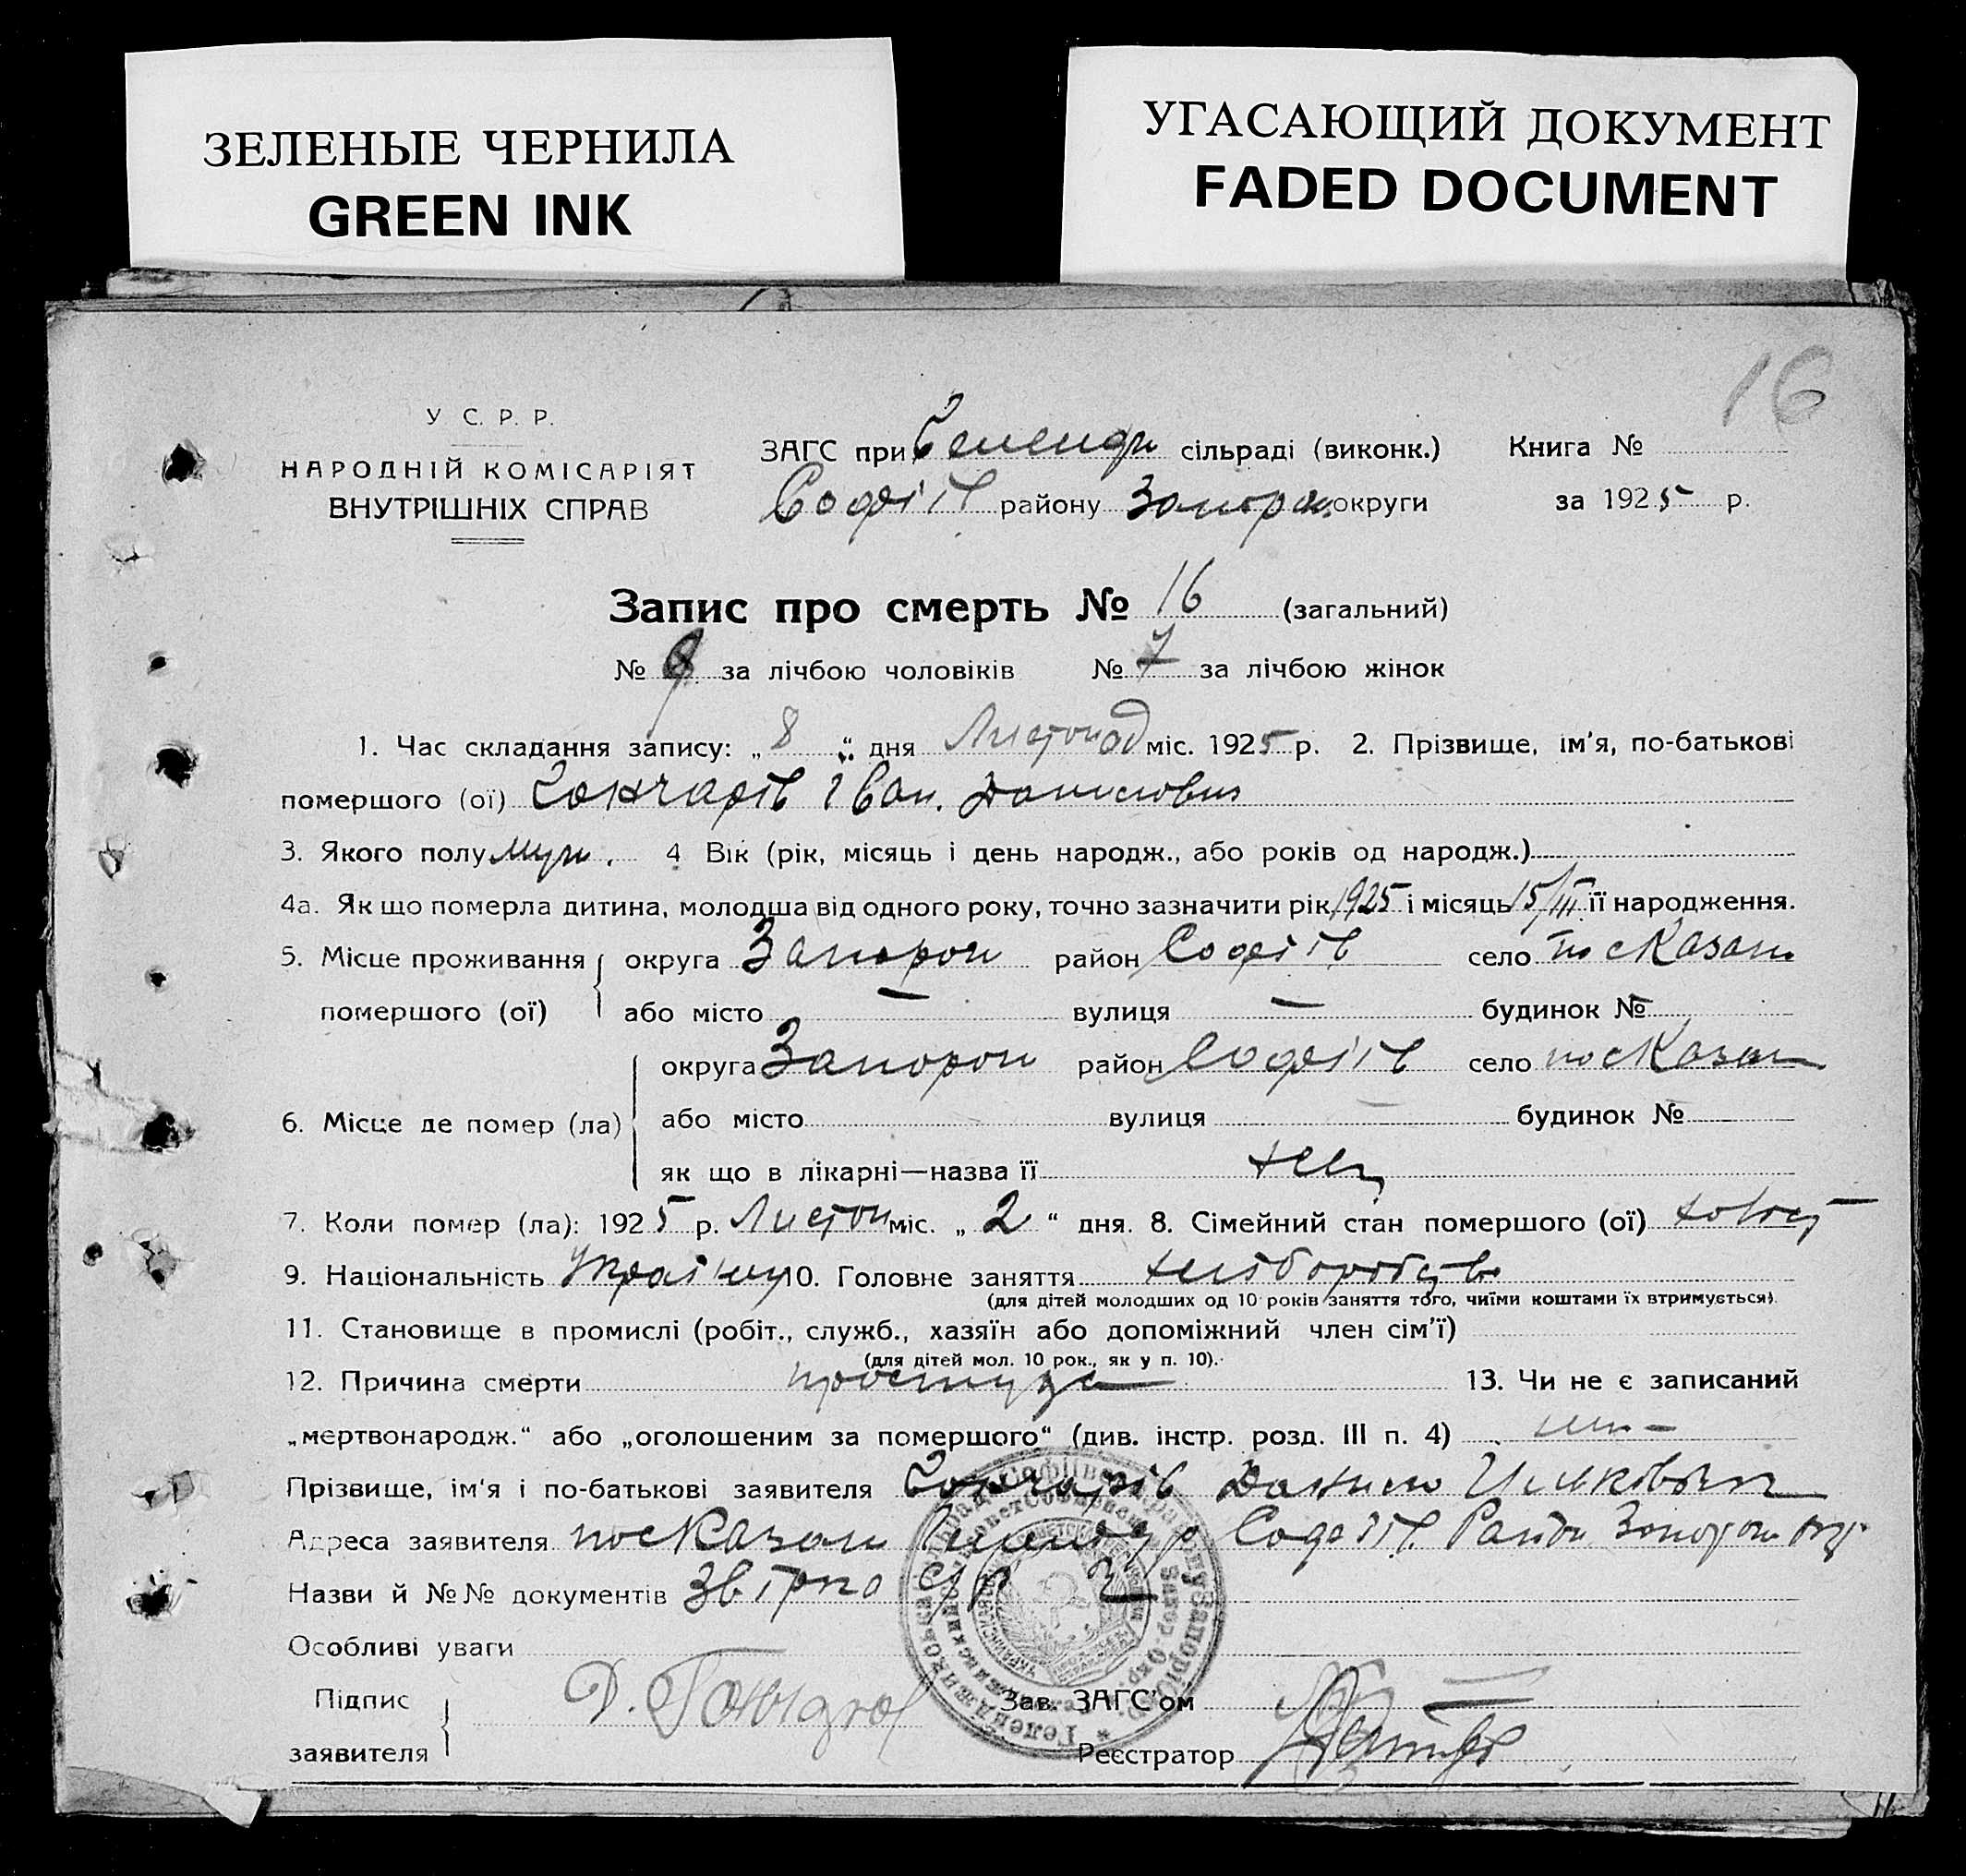 ЗЕЛЕНЫЕ ЧЕРНИЛА
GREEN INK
УГАСАЮЩИЙ ДОКУМЕНТ
FADED DOCUMENT
16
У. С. Р. Р.
НАРОДНІЙ КОМІСАРІЯТ
ВНУТРІШНІХ СПРАВ
ЗАГС при сільраді (виконк.)
Софіїв району Запорож. округи
Книга №
за 1925 р.
Запис про смерть № 16 (загальний)
№ 9 за лічбою чоловіків № 7 за лічбою жінок
1. Час складання запису: „8“ дня Листопад міс. 1925 р. 2. Прізвище, ім'я, по-батькові
помершого (ої) Гончарів Іван Данилович
3. Якого полу муж. 4 Вік (рік, місяць і день народж., або років од народж.)
4а. Як що померла дитина, молодша від одного року, точно зазначити рік 1925 і місяць 15/III її народження.
5. Місце проживання округа Запорож район Софіїв село пос Казан
помершого (ої) або місто — вулиця — будинок №
округа Запорож район Софіїв село пос Казан
6. Місце де помер (ла) або місто вулиця — будинок №
як що в лікарні—назва її
7. Коли помер (ла): 1925 р. Листоп міс. „2“ дня. 8. Сімейний стан помершого (ої) холост
9. Національність Україн 10. Головне заняття хліборобство
(для дітей молодших од 10 років заняття того, чиїми коштами їх втримується).
11. Становище в промислі (робіт., служб., хазяїн або допоміжний член сім'ї)
(для дітей мол. 10 рок., як у п. 10).
12. Причина смерти простуда 13. Чи не є записаний
„мертвонародж.“ або „оголошеним за помершого“ (див. інстр. розд. III п. 4)
Прізвище, ім'я і по-батькові заявителя Гончарів Данило
Адреса заявителя пос Казан Софіїв. Район Запорож окр
Назви й №№ документів
Особливі уваги
Підпис
заявителя
Зав. ЗАГС'ом
Реєстратор